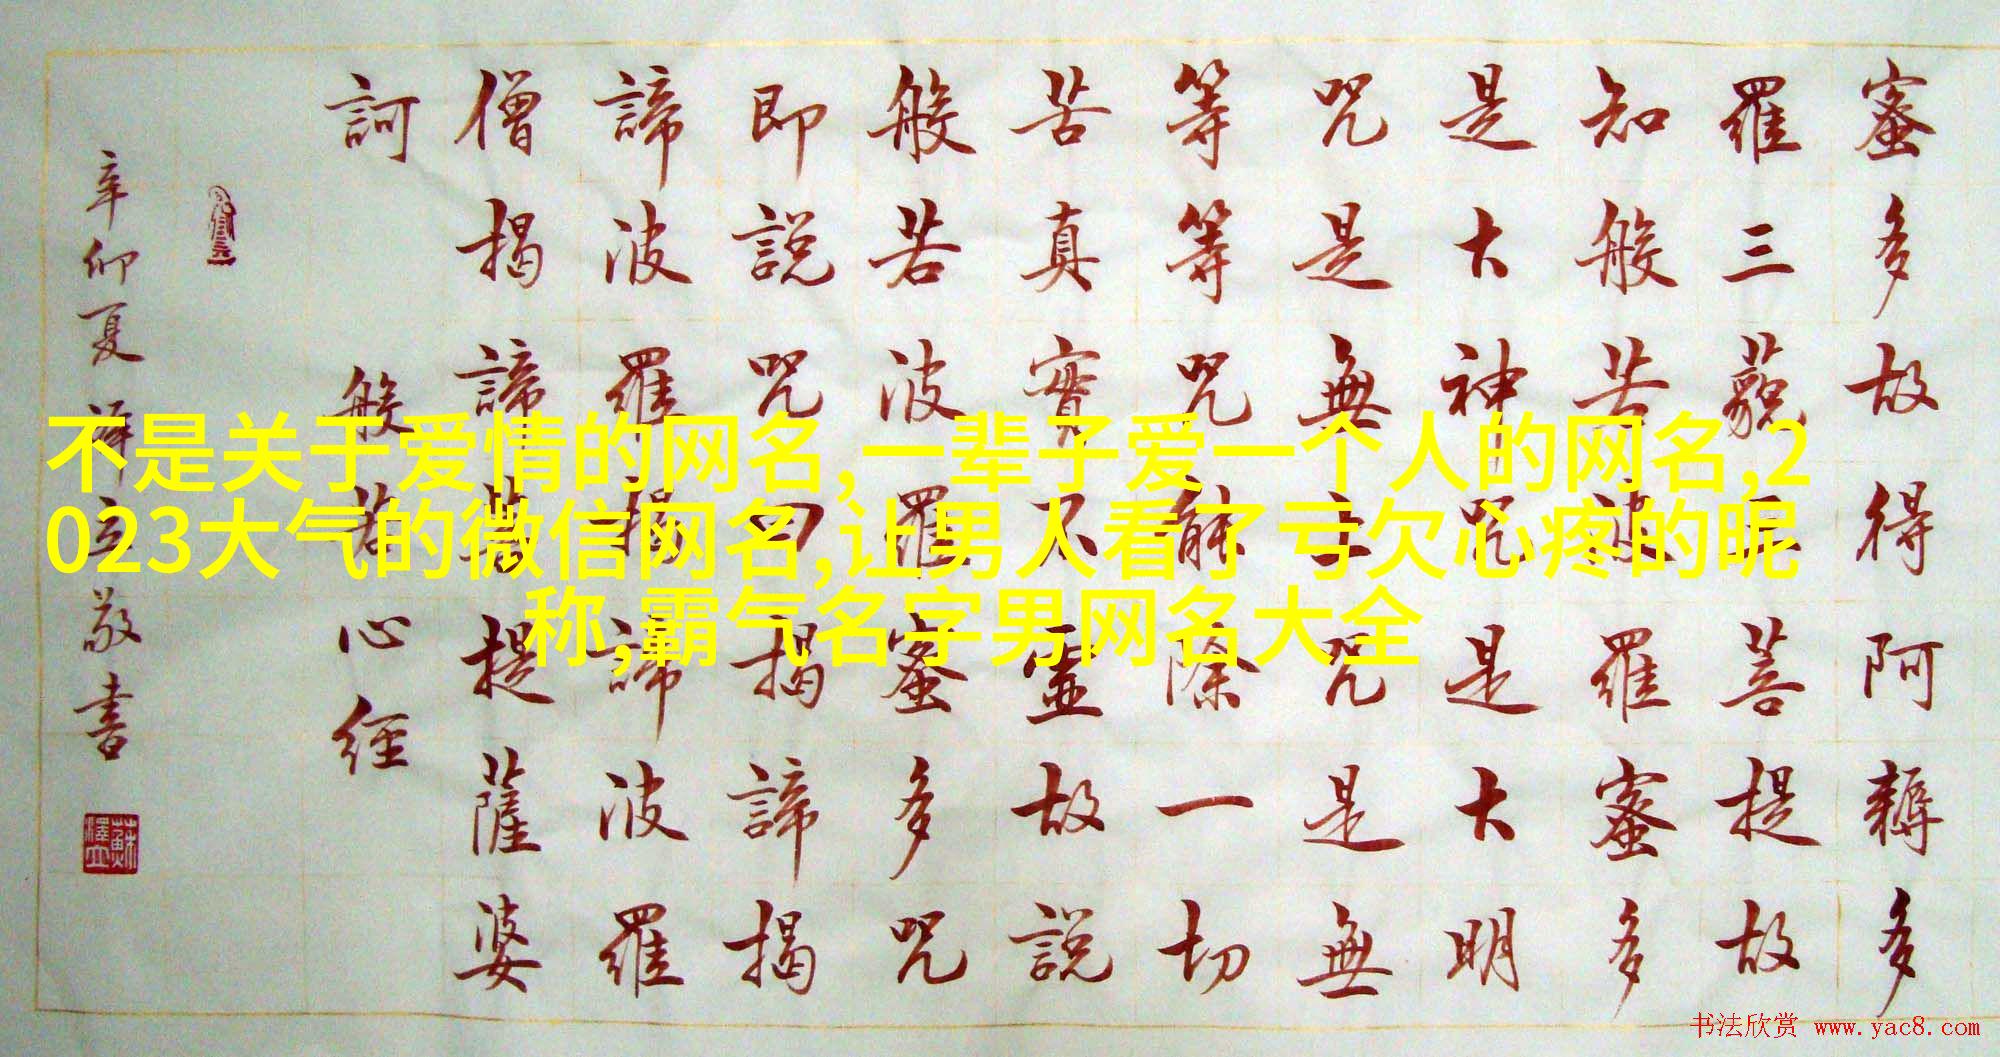 蜜多故得阿耨多
羅三藐三菩提故
知般若波羅蜜多
是大神咒是大明
咒是無上咒是無
等等咒能除一切
苦真實不虛故說
般若波羅蜜多咒
即說咒曰揭諦揭
諦波羅揭諦波羅
僧揭諦菩提薩婆
訶 般若心經
辛卯夏澤立敬書
蘇澤立
不是关于爱情的网名,一辈子爱一个人的网名,2
023大气的微信网名,让男人看了亏欠心疼的昵
称,霸气名字男网名大全
书法欣赏 www.yac8.com